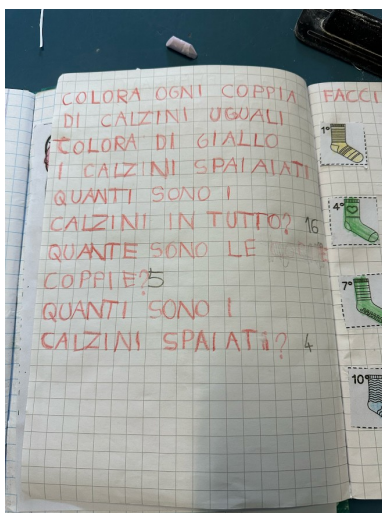 COLORA OGNI COPPIA
DI CALZINI UGUALI
COLORA DI GIALLO
I CALZINI SPAIAIATI
QUANTI SONO I
CALZINI IN TUTTO? 16
QUANTE SONO LE
COPPIE? 5
QUANTI SONO I
CALZINI SPAIATI? 4
FACCI
1°
4°
7°
10°